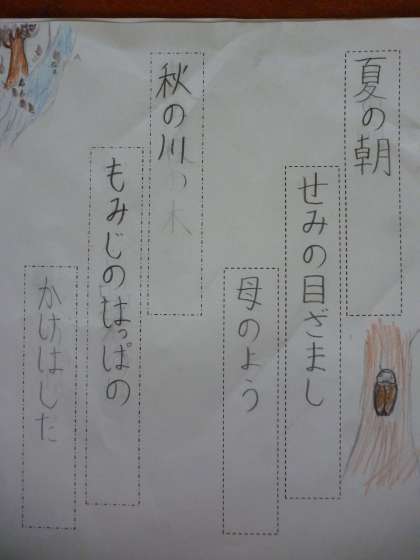 夏の朝
せみの目ざまし
母のよう
秋の川
もみじのはっぱの
かけはしだ